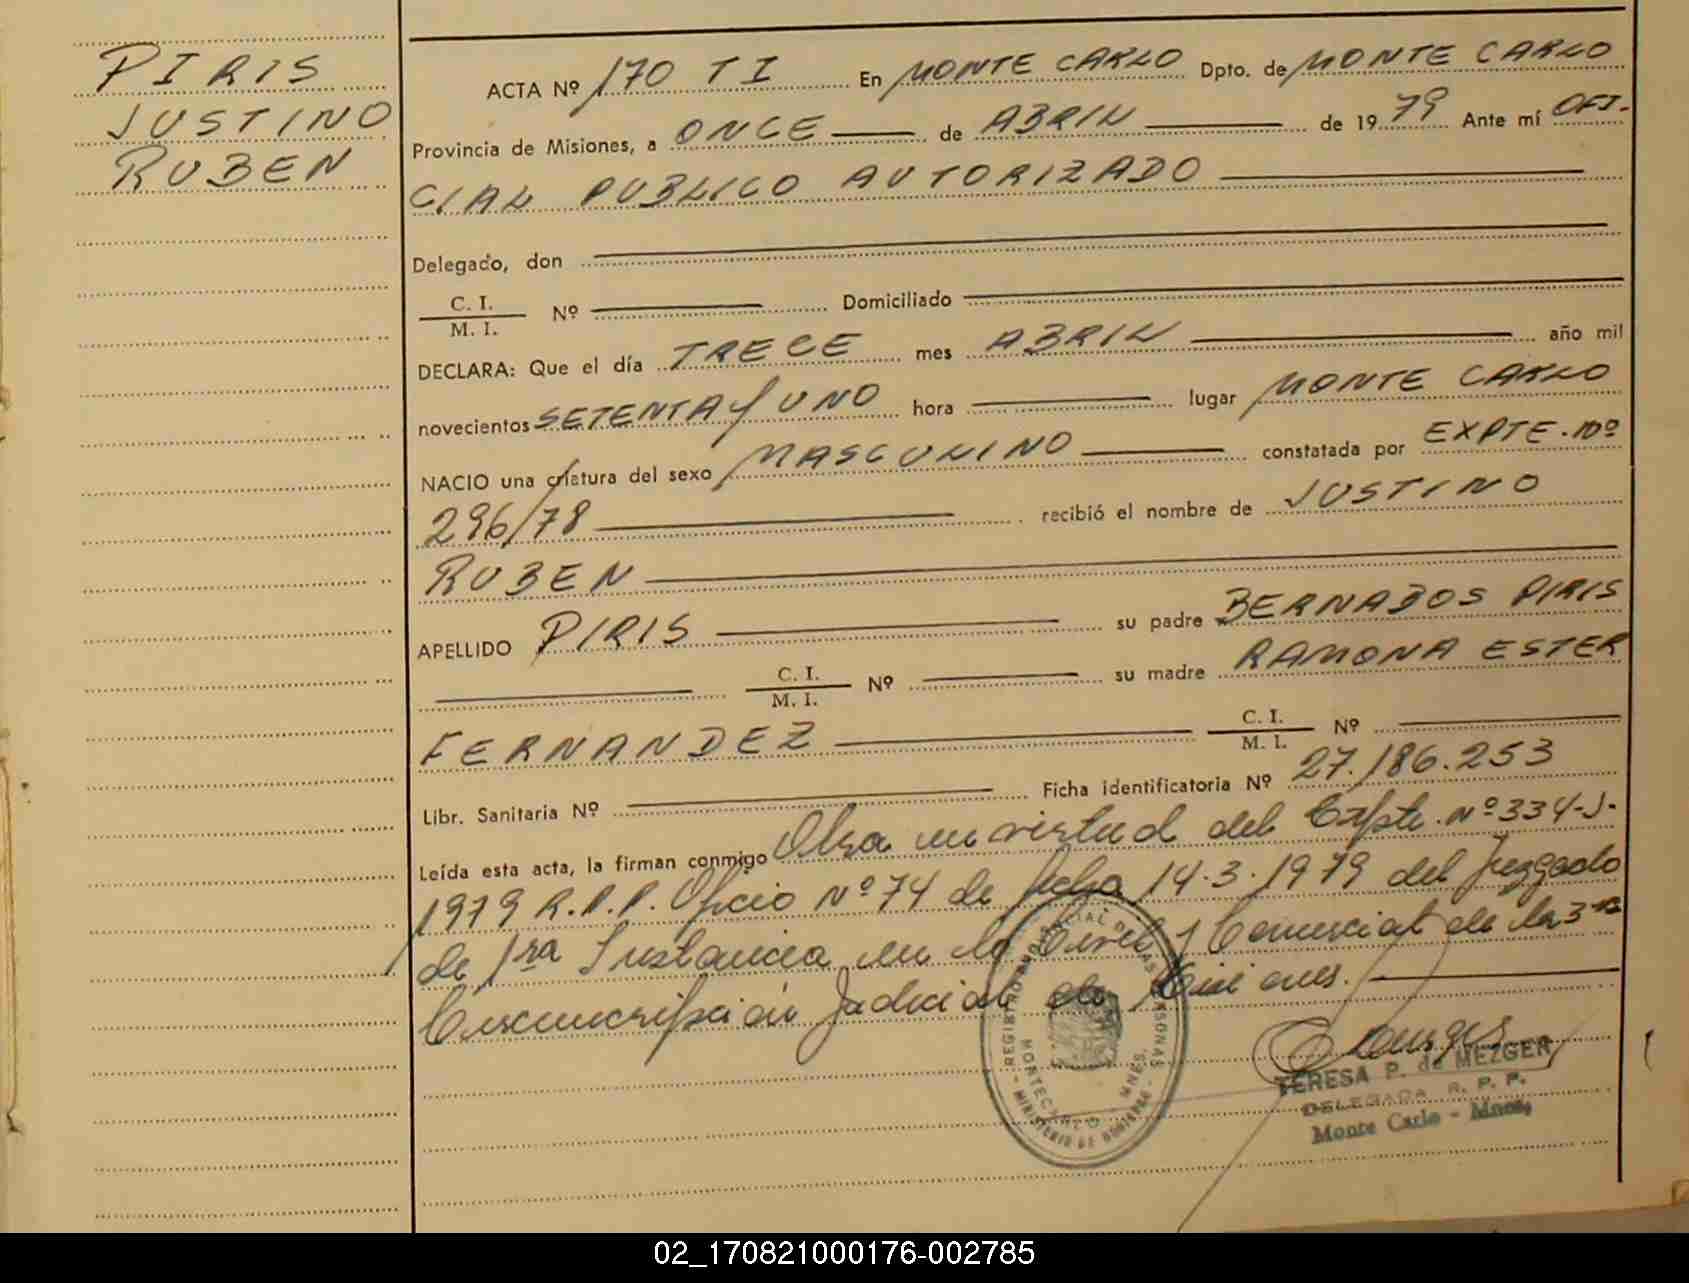 PIRIS
JUSTINO
RUBEN
ACTA Nº 170 TI En MONTE CARLO Dpto. de MONTE CARLO
Provincia de Misiones, a ONCE de ABRIL de 1979 Ante mí OFI-
CIAL PUBLICO AUTORIZADO
Delegado, don
C. I.
M. I. Nº Domiciliado
DECLARA: Que el día TRECE mes ABRIL año mil
novecientos SETENTA Y UNO hora lugar MONTE CARLO
NACIO una criatura del sexo MASCULINO constatada por EXPTE. Nº
296/78 recibió el nombre de JUSTINO
RUBEN
APELLIDO PIRIS su padre BERNABOS PIRIS
C. I.
M. I. Nº su madre RAMONA ESTER
FERNANDEZ C. I.
M. I. Nº
Libr. Sanitaria Nº Ficha identificatoria Nº 27.186.253
Leída esta acta, la firman conmigo Obra en virtud del Expte. Nº 334-J-
1979 R.P.P. Oficio Nº 74 de fecha 14.3.1979 del Juzgado
de 1ra Instancia en lo Civil y Comercial de la 3ra
Circunscripción Judicial de Misiones.
REGISTRO PROVINCIAL DE LAS PERSONAS
MONTECARLO MNES.
- MINISTERIO DE GOBIERNO -
TERESA P. de MEZGER
DELEGADA R. P. P.
Monte Carlo - Mnes.
02_170821000176-002785